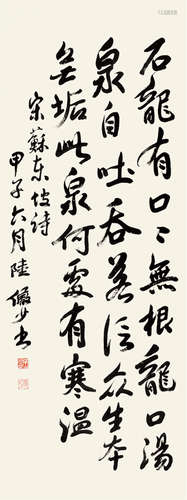 石龍有口〻無根龍口湯
泉自吐吞若信眾生本
無垢此泉何處有寒溫
宋蘇東坡詩
甲子六月陸儼少書